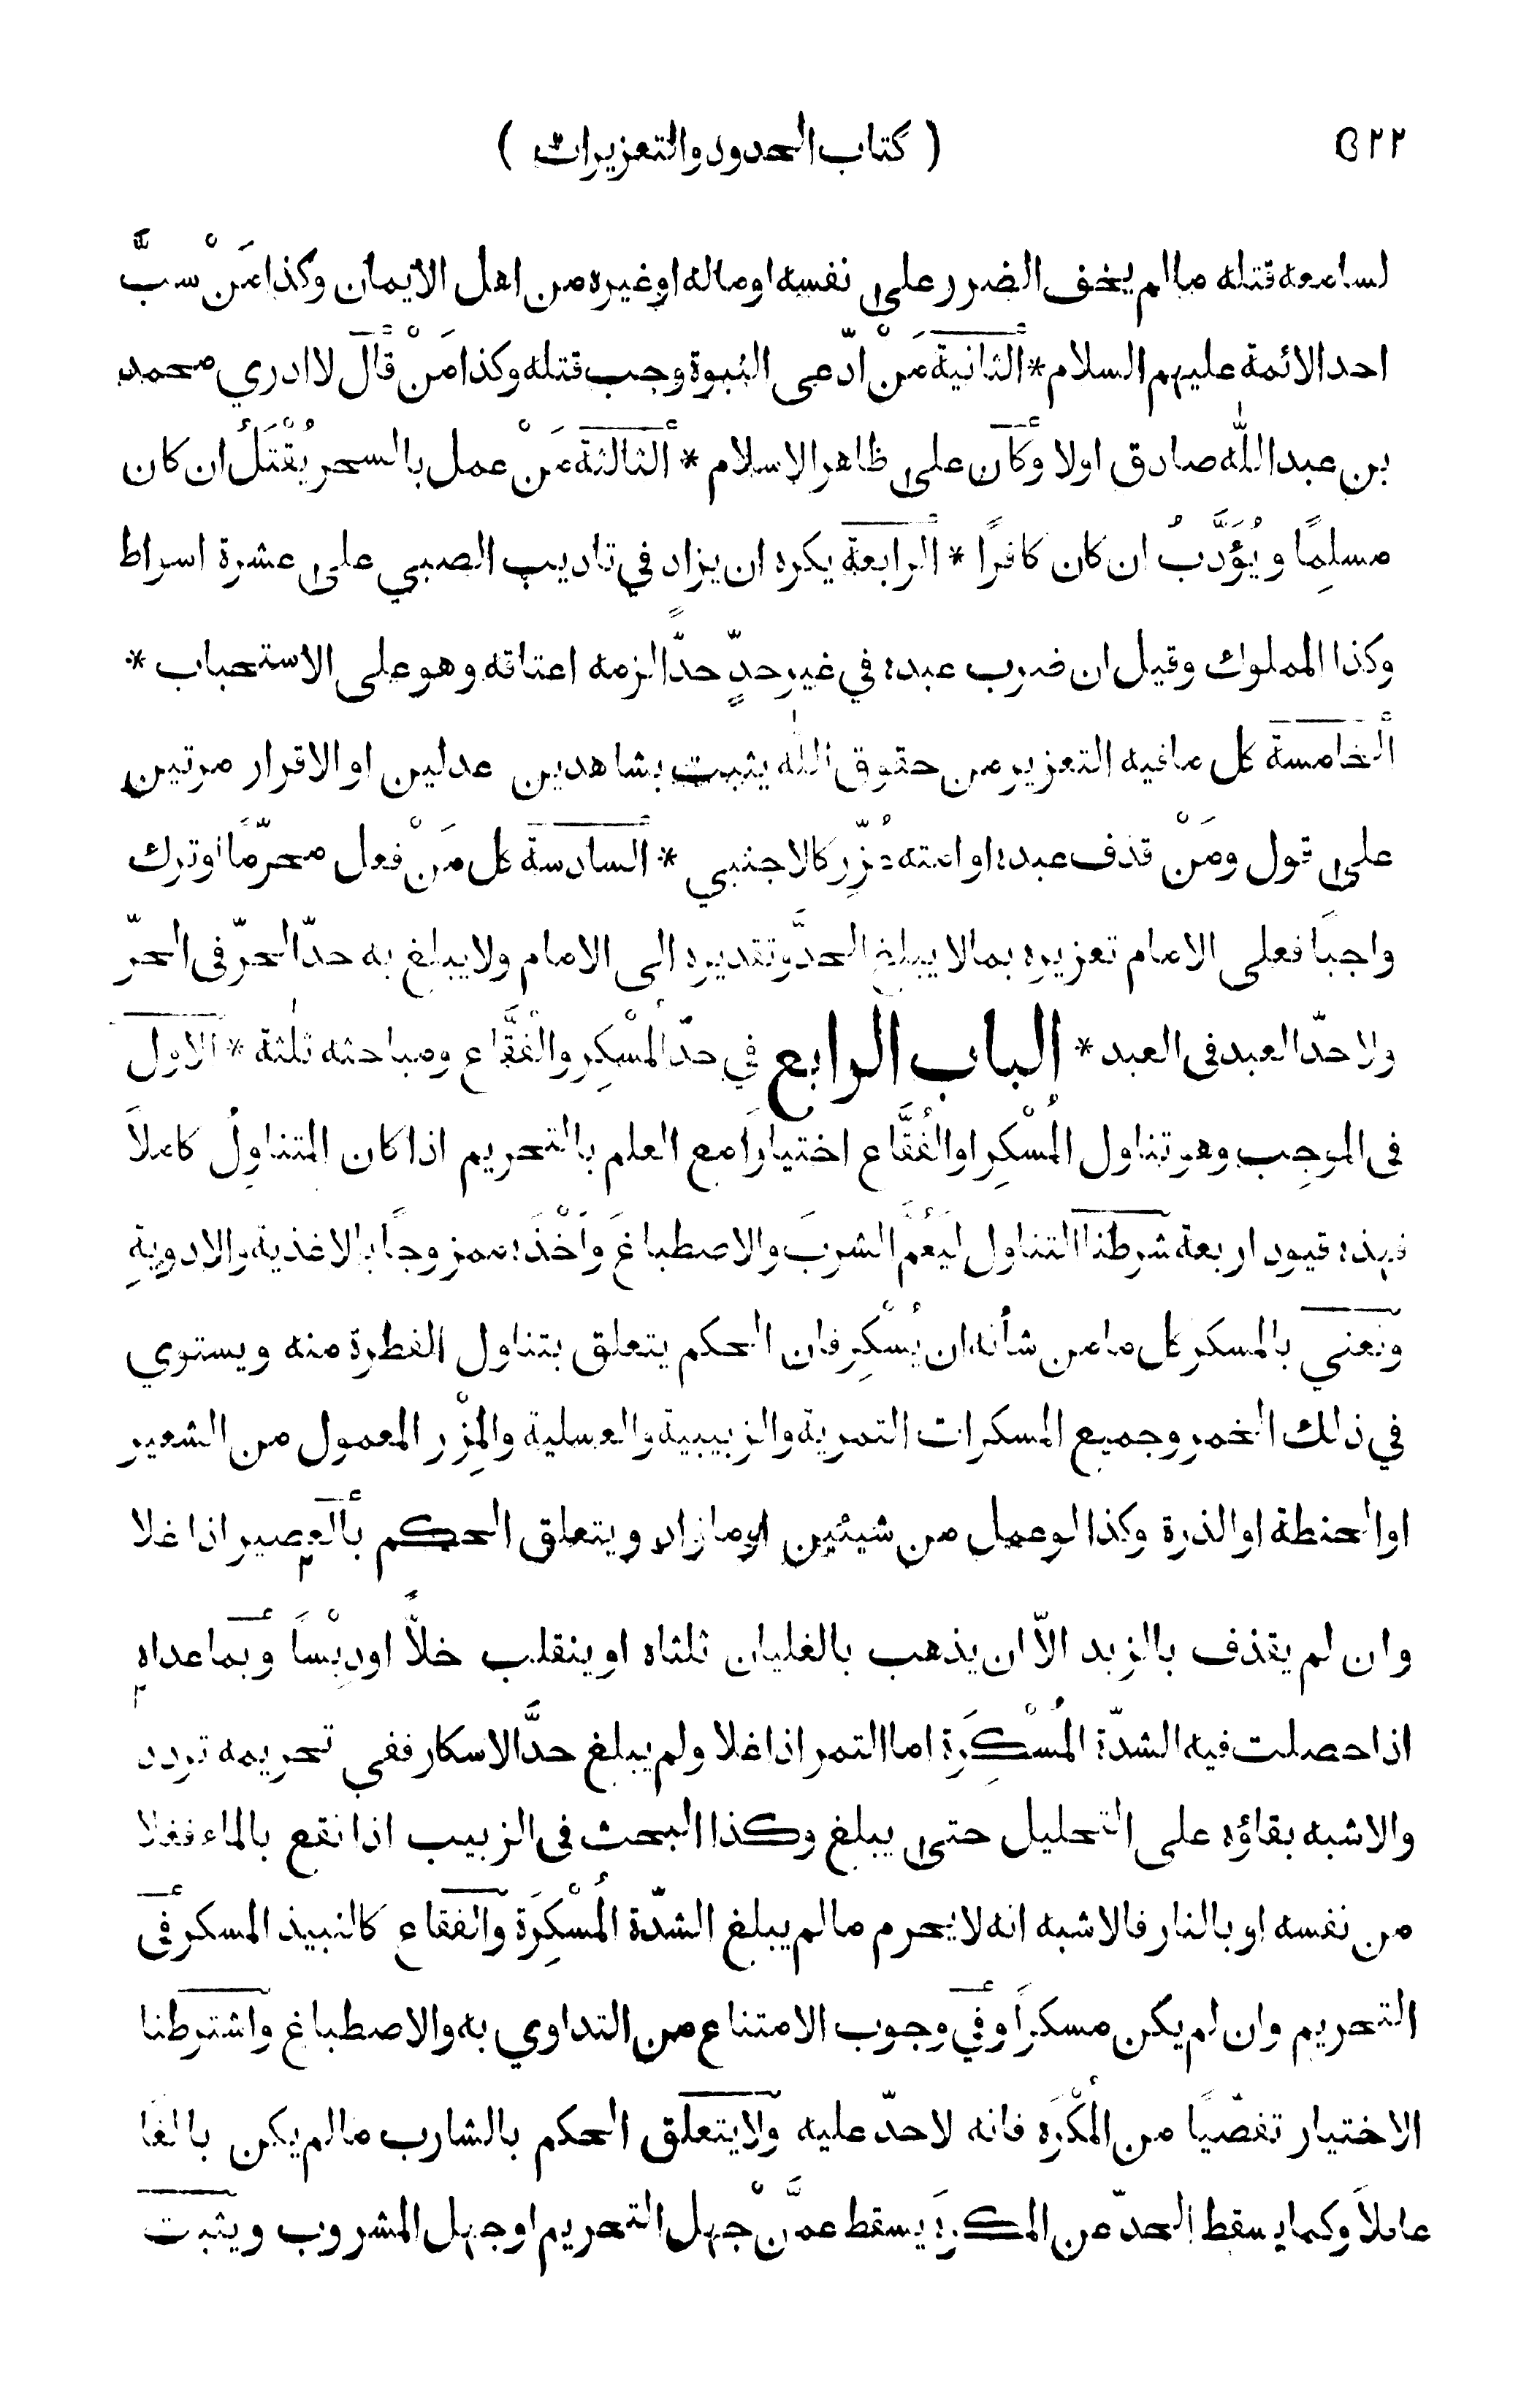 ٥٢٢ ( كتاب الحدود والتعزيرات )
لسامعه قتله مالم يخف الضرر على نفسه او ماله او غيره من اهل الايمان وكذا مَنْ سبَّ
احد الائمة عليهم السلام * الثانية مَنْ ادّعى النبوة وجب قتله وكذا مَنْ قال لا ادري محمد
بن عبد الله صادق اولا وكان على ظاهر الاسلام * الثالثة مَنْ عمل بالسحر يُقْتَلُ ان كان
مسلِمًا ويُؤَدَّبُ ان كان كافرًا * الرابعة يكره ان يزاد في تاديب الصبي على عشرة اسواط
وكذا المملوك وقيل ان ضرب عبده في غير حدٍّ حدًّا لزمه اعتاقه وهو على الاستحباب *
الخامسة كل مافيه التعزير من حقوق الله يثبت بشاهدين عدلين او الاقرار مرتين
على قول ومَنْ قذف عبده او امته عُزّر كالاجنبي * السادسة كل مَنْ فعل محرّمًا او ترك
واجبًا فعلى الامام تعزيره بما لا يبلغ الحدَّ وتقديره الى الامام ولا يبلغ به حدّ الحرّ فى الحرّ
ولا حدّ العبد فى العبد * الباب الرابع في حدّ المُسْكِر والفُقَّاع ومباحثه ثلثة * الاول
فى الموجِب وهو تناول المُسْكِر او الفُقَّاع اختيارًا مع العلم بالتحريم اذا كان المتناوِلُ كاملاً
فهذه قيود اربعة شرطنا التناول ليَعُمَّ الشربَ والاصطباغَ وأَخْذَه ممزوجًا بالاغذية والادويةِ
ونعني بالمسكر كل ما من شأنه ان يُسْكِر فان الحكم يتعلق بتناول القطرة منه ويستوي
في ذلك الخمر وجميع المسكرات التمرية والزبيبية والعسلية والمِزْر المعمول من الشعير
او الحنطة او الذرة وكذا لو عمل من شيئين او مازاد ويتعلق الحكم بالعصير اذا غلا
وان لم يقذف بالزبد الاّ ان يذهب بالغليان ثلثاه او ينقلب خلاًّ او دِبْسًا وبما عداه
اذا حصلت فيه الشدّة المُسْكِرَة اما التمر اذا غلا ولم يبلغ حدَّ الاسكار ففي تحريمه تردد
والاشبه بقاؤه على التحليل حتى يبلغ وكذا البحث فى الزبيب اذا نقع بالماء فغلا
من نفسه او بالنار فالاشبه انه لا يحرم مالم يبلغ الشدّة المُسْكِرَة والفقاع كالنبيذ المسكر فى
التحريم وان لم يكن مسكرًا وفي وجوب الامتناع من التداوي به والاصطباغ واشترطنا
الاختيار تفصّيًا من المُكْرَه فانه لا حدّ عليه ولا يتعلق الحكم بالشارب مالم يكن بالغا
عاقلاً وكما يسقط الحدّ عن المكرَه يسقط عمَّنْ جهل التحريم او جهل المشروب ويثبت